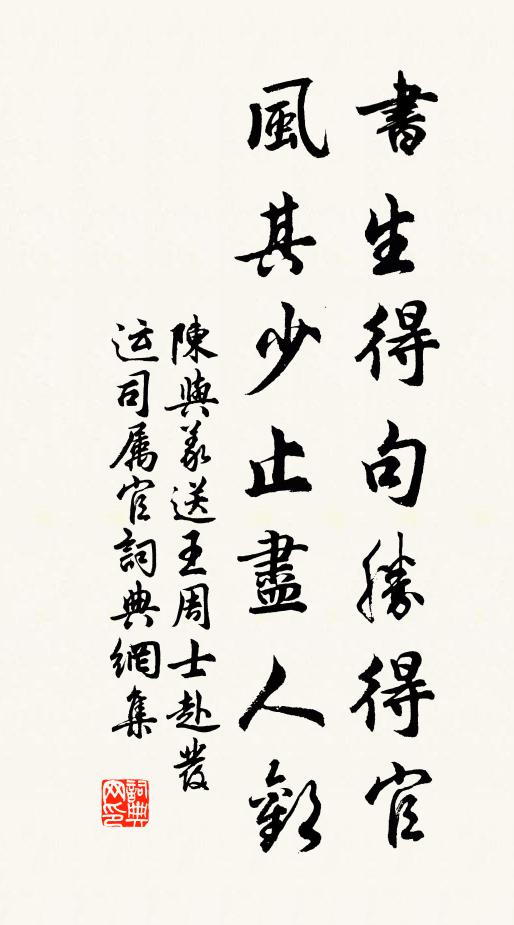 書生得句勝得官
風其少止盡人歡
陳與義送王周士赴發
运司属官詞典網集
詞典网印